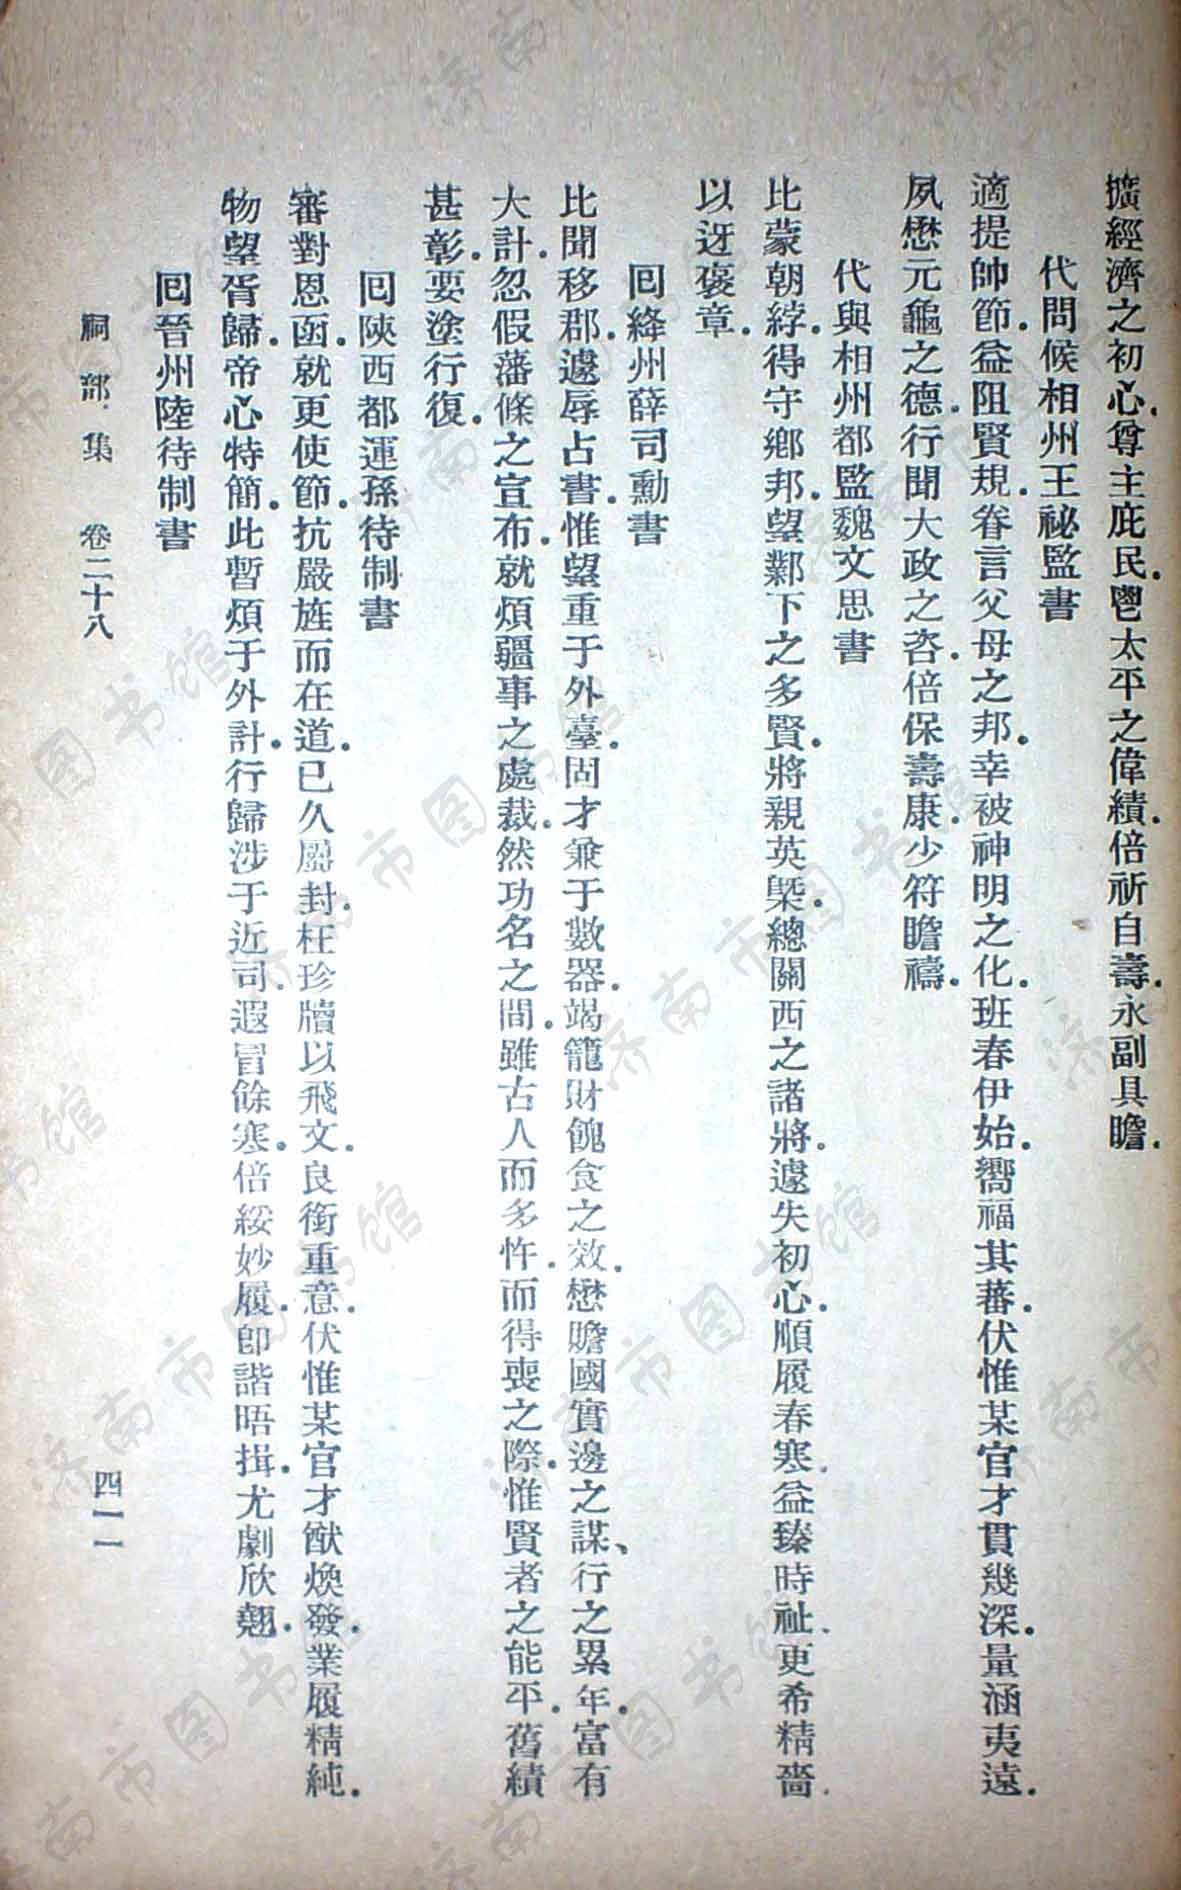 擴經濟之初心。尊主庇民。鬯太平之偉績。倍祈自壽。永副具瞻。
代問候相州王祕監書
適提帥節。益阻賢規。眷言父母之邦。幸被神明之化。班春伊始。嚮福其蕃。伏惟某官才貫幾深。量涵夷遠。
夙懋元龜之德。行聞大政之咨。倍保壽康。少符瞻禱。
代與相州都監魏文思書
比蒙朝綍。得守鄉邦。望鄴下之多賢。將親英槩。總關西之諸將。遽失初心。順履春寒。益臻時祉。更希精嗇。
以迓褒章。
回絳州薛司勳書
比聞移郡。遽辱占書。惟望重于外臺。固才兼于數器。竭籠財餽食之效。懋贍國實邊之謀、行之累年。富有
大計。忽假藩條之宣布。就煩疆事之處裁。然功名之間。雖古人而多忤。而得喪之際。惟賢者之能平。舊績
甚彰。要塗行復。
回陝西都運孫待制書
審對恩函。就更使節。抗嚴旌而在道。已久屬封。枉珍牘以飛文。良銜重意。伏惟某官才猷煥發。業履精純。
物望胥歸。帝心特簡。此暫煩于外計。行歸涉于近司。遐冒餘寒。倍綏妙履。卽諧晤揖。尤劇欣翹。
回晉州陸待制書
祠部集 卷二十八
四一一